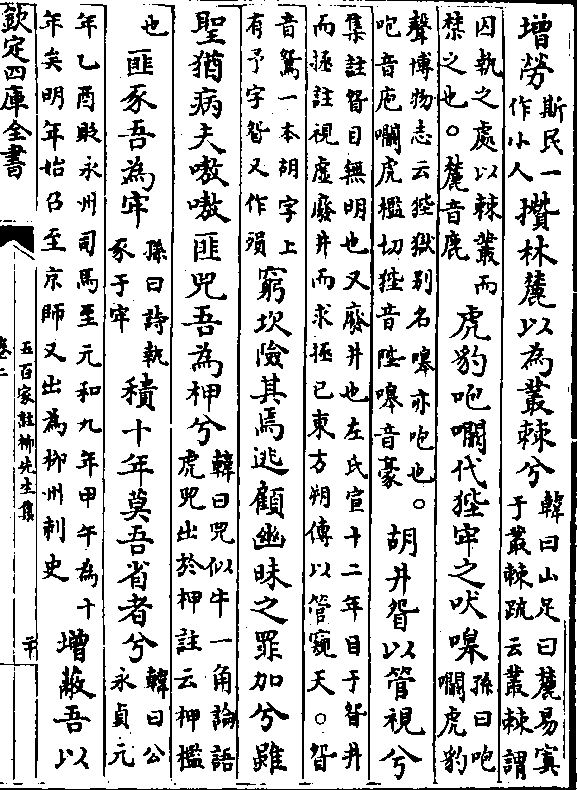 增勞
斯民一
作小人
攢林麓以為叢棘兮
韓曰山足曰麓易寘
于叢棘疏云叢棘謂
囚執之處以棘叢而
禁之也。麓音鹿
虎豹咆㘚代狴牢之吠嘷
孫曰咆
㘚虎豹
聲博物志云狴獄別名嘷亦咆也。
咆音庖㘚虎檻切狴音陛嘷音豪
胡井眢以管視兮
集註眢目無明也又廢井也左氏宣十二年目于眢井
而拯註視虛廢井而求拯已東方朔傳以管窺天。眢
音鴛一本胡字上
有予字眢又作
窮坎險其焉逃顧幽昧之罪加兮雖
聖猶病夫嗷嗷匪兕吾為柙兮
韓曰兕似牛一角論語
虎兕出於柙註云柙檻
也
匪豕吾為牢
孫曰詩執
豕于牢
積十年莫吾省者兮
韓曰公
永貞元
年乙酉貶永州司馬至元和九年甲午為十
年矣明年始召至京師又出為柳州刺史
增蔽吾以
欽定四庫全書
五百家註柳先生集
卷二